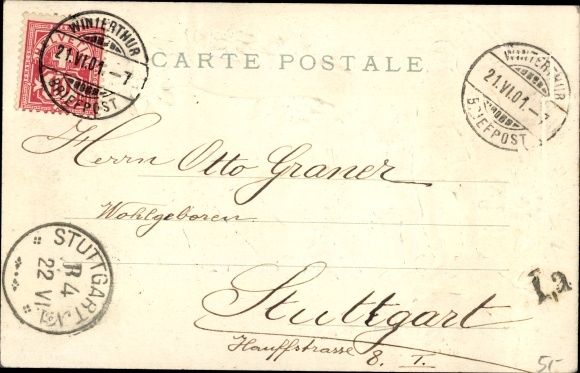 WINTERTHUR
21.VI.01.-7
BRIEFPOST
CARTE POSTALE.
WINTERTHUR
21.VI.01.-7
BRIEFPOST
Herrn Otto Graner
Wohlgeboren
STUTTGART
B4
22 VI
Stuttgart
Hauffstrasse 8. I.
1a
5.-